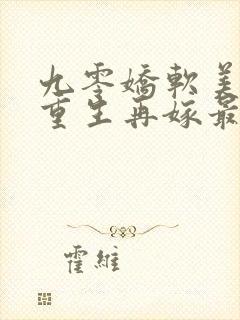 九零嬌軟美
重生再嫁最
霍維